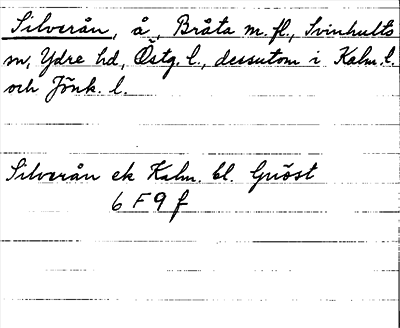 Silverån, å, Bråta m. fl., Svinhults
sn, Ydre hd, Östg. l., dessutom i Kalm. l.
och Jönk. l.
Silverån ek Kalm. bl. Gnöst
6 F 9 f